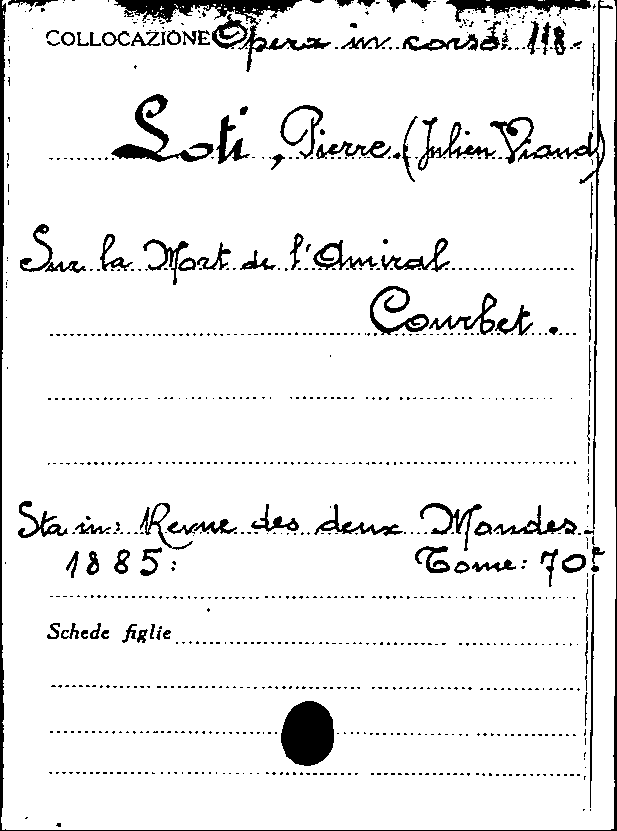 COLLOCAZIONE Opera in corso 118.
Loti, Pierre. (Julien Viaud)
Sur la Mort de l'Amiral
Courbet.
Sta in: Revue des deux Mondes.
1885: Tome: 70.
Schede figlie